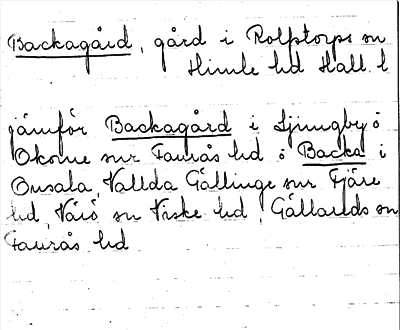 Backagård, gård i Rolfstorps sn
Himle hd Hall. l
jämför Backagård i Ljungby o
Okome snr Faurås hd o Backa i
Onsala, Vallda Gällinge snr Fjäre
hd, Värö sn Viske hd, Gällareds sn
Faurås hd